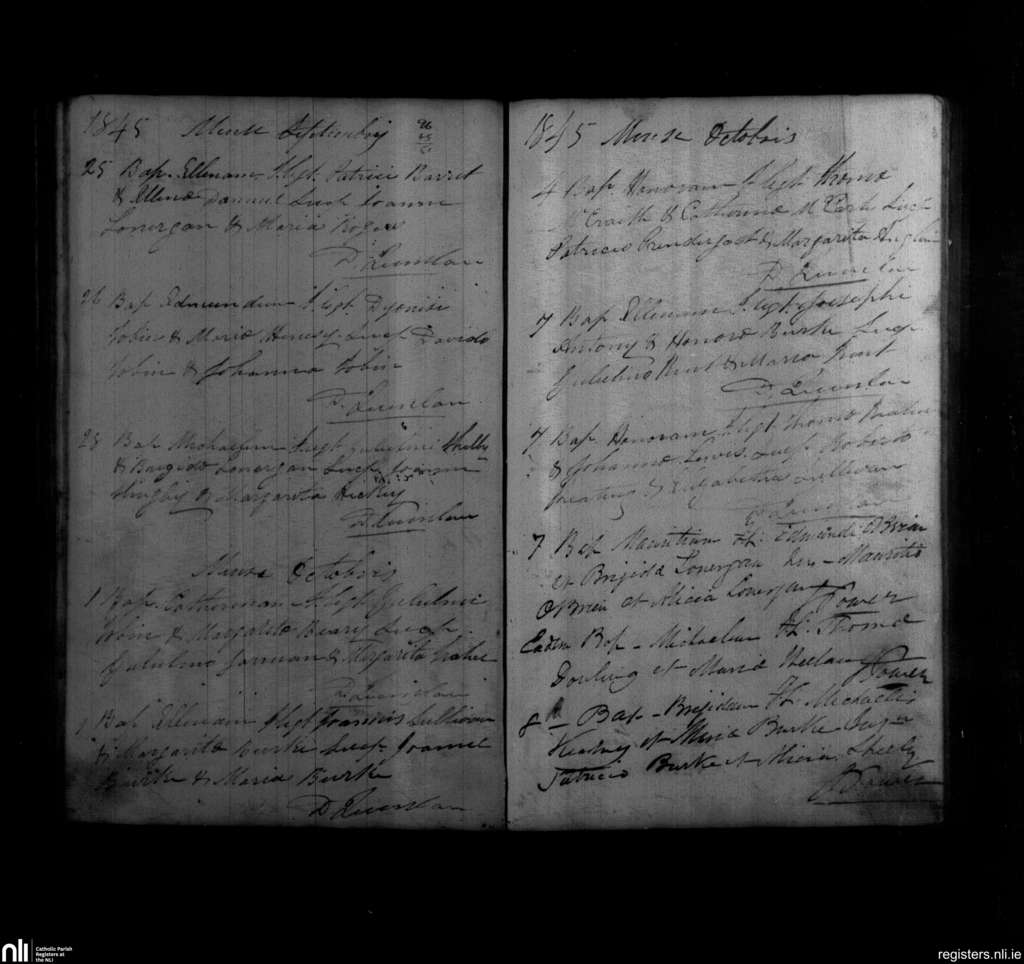 1845 Mense Septembris
26
25
51
25 Bap. Ellenam F. legt Patricii Barret
& Ellena Daniel Susp Joanne
Lonergan & Maria Rogers
D. Quinlan
26 Bap Edmundum F. legt Dyonisi
Tobin & Maria Henesy Susp Davido
Tobin & Johanna Tobin
D. Quinlan
28 Bap Michaelem F legt Gulielmi
& Brigida Lonergan Susp Joanne
& Margarita Hickey
D. Quinlan
Mense Octobris
1 Bap. Catherinam F. legt Gulielmi
Tobin & Margarita Beary Susp
Gulielmo Gorman & Margarita
D. Quinlan
1 Bap Ellenam F legt Francis Sullivan
& Margarita Burke Susp Joanne
Burke & Maria Burke
D Quinlan
1845 Mense Octobris
4 Bap Honoram F legt Thoma
McCraith & Catherina McCarte Susp
Patricio Prendergast & Margarita
D. Quinlan
7 Bap Ellenam F. legt. Josephi
Antony & Honora Burke Susp
Gulielmo Hunt & Maria Hunt
D. Quinlan
7 Bap Honoram F legt Thoma
& Johanna Lewis Susp Roberto
Keating & Elizabetha Sullivan
D Quinlan
7 Bap Mauritium Fl. Edmundi OBrien
et Brigida Lonergan Sus - Mauritio
OBrien et Alicia Lonergan J Power
Eadem Bap - Michaelem Fl. Thoma
Dowling et Maria Meelan J Power
8th Bap - Brigidam Fl. Michaelis
et Maria Burke
Patricio Burke et Alicia Sheely
J Power
nli
Catholic Parish
Registers at
the NLI
registers.nli.ie